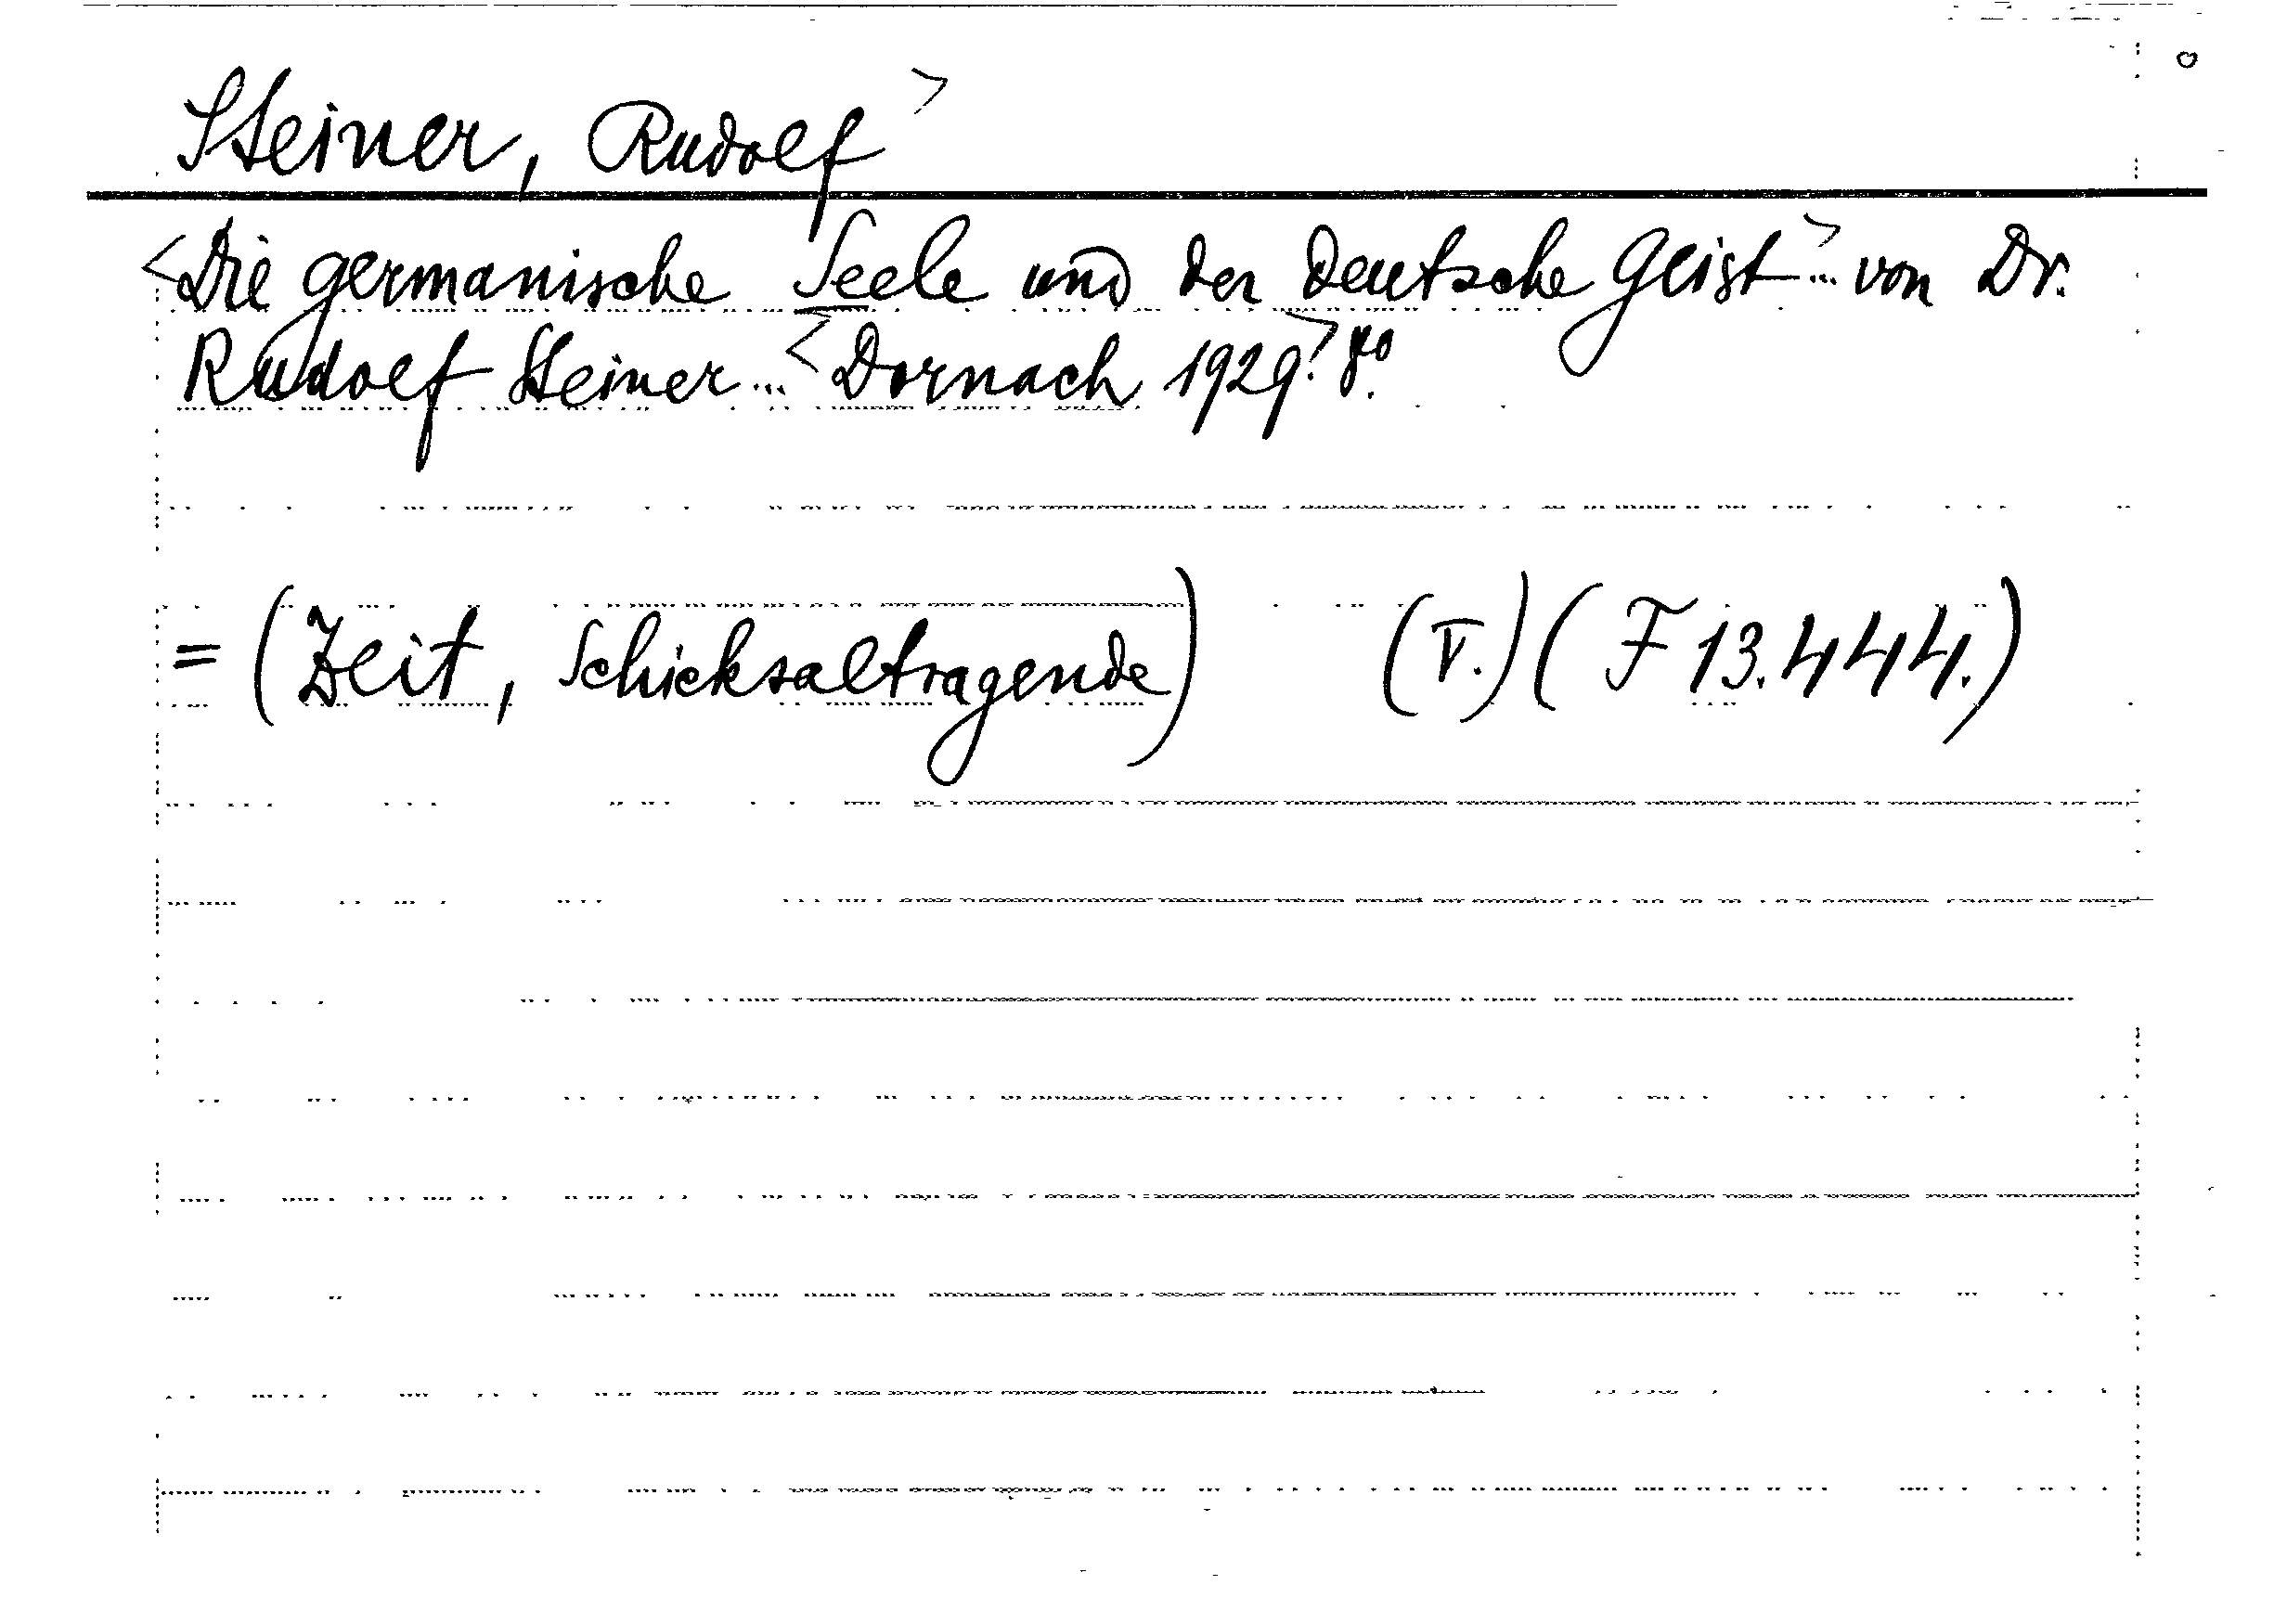 Steiner, Rudolf>
<Die germanische Seele und der deutsche Geist>... von Dr.
Rudolf Steiner...<Dornach 1929.> 8°.
= (Zeit, Schicksaltragende) (V.) (F 13.444.)